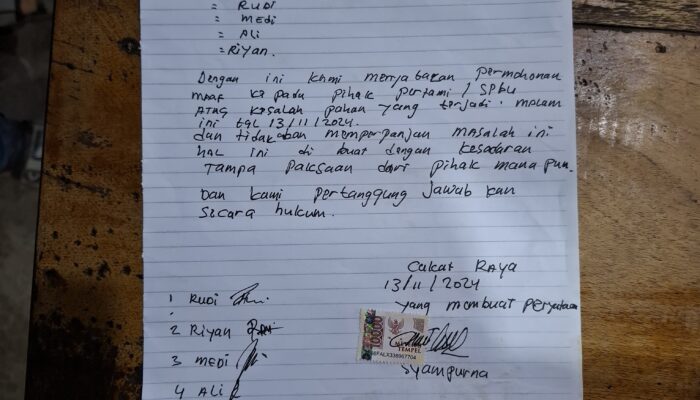 = Rudi
= medi
= Ali
= Riyan.
Dengan ini kami menyatakan permohonan
maaf kepada pihak pertami / SPBU
atas kesalah pahan yang terjadi. malam
ini tgl 13/11/2024.
dan tidak akan memperpanjan masalah ini
hal ini di buat dengan kesadaran
Tampa paksaan dari pihak mana pun.
Dan kami pertanggung Jawab kan
secara hukum.
Calcat RAYA
13/11/2024
yang membuat peryataan
1 Rudi
2 Riyan
3 medi
4 Ali
10000
TEMPEL
Syampurna